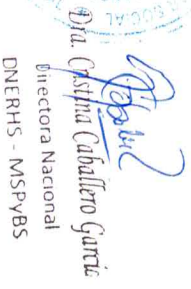 SOCIAL
Dra. Cristina Caballero García
Directora Nacional
DNERHS - MSPyBS